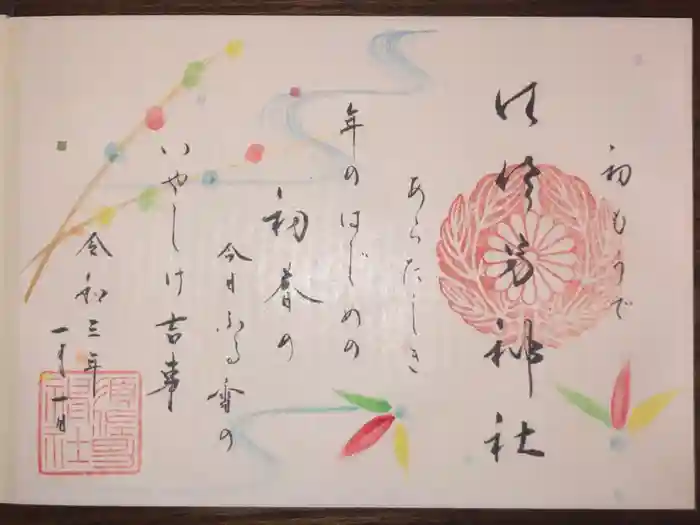 初もうで
神社
あらたしき
年のはじめの
初春の
今日ふる雪の
いやしけ吉事
令和三年
一月一日